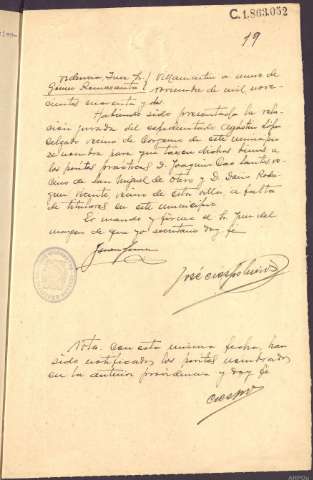 C.1.863.052
19
Providencia, Juez Sr. Villamartín a nueve de
Gómez Remesarín noviembre de mil nove-
cientos cuarenta y dos
Habiendo sido presentada la rela-
ción jurada del expedientado Agustín López
Salgado vecino de de este municipio
se nombra para que tasen dichos bienes a
los peritos prácticos D. Joaquín Cao Santos ve-
cino de San Miguel de Otero y D. Rodri-
guez Vicente, vecino de esta villa a falta
de titulares en este municipio
Lo mandó y firma el Sr. Juez del
margen de que yo secretario doy fé
José Crespo
Nota. Con esta misma fecha, han
sido notificados los peritos nombrados
en la anterior providencia y doy fé
Crespo